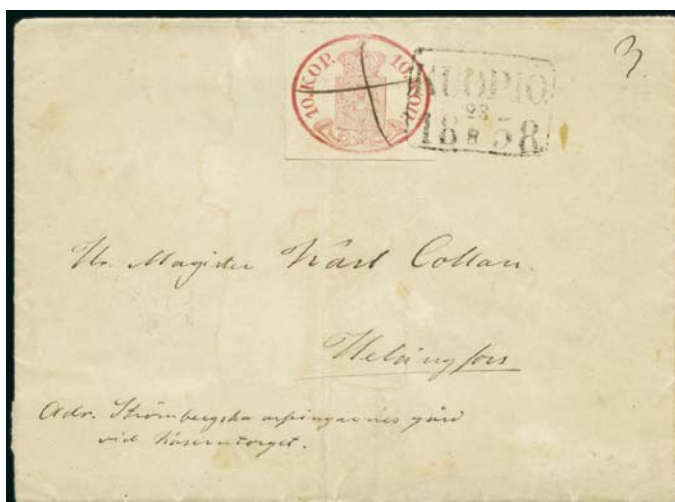 10. KOP. 10. KOP.
KUOPIO
23
18 8 58
3.
Hr. Magister Karl Collan.
Helsingfors
Adr. Strömbergska arfvingarnes gård
vid Kaserntorget.